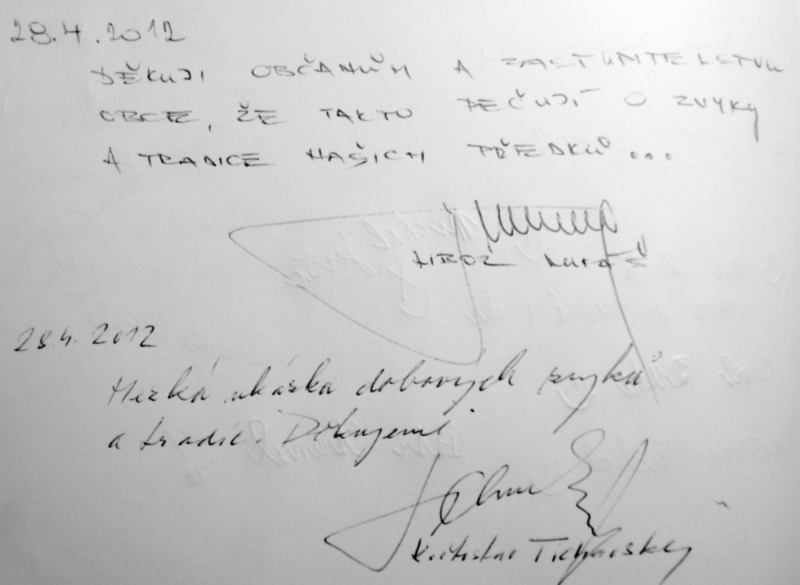 28.4.2012
DĚKUJI OBČANŮM A ZASTUPITELSTVU
OBCE, ŽE TAKTO PEČUJÍ O ZVYKY
A TRADICE NAŠICH PŘEDKŮ...
LIBOR LUKÁŠ
28.4.2012
Hezká ukázka dobových zvyků
a tradic. Děkujeme